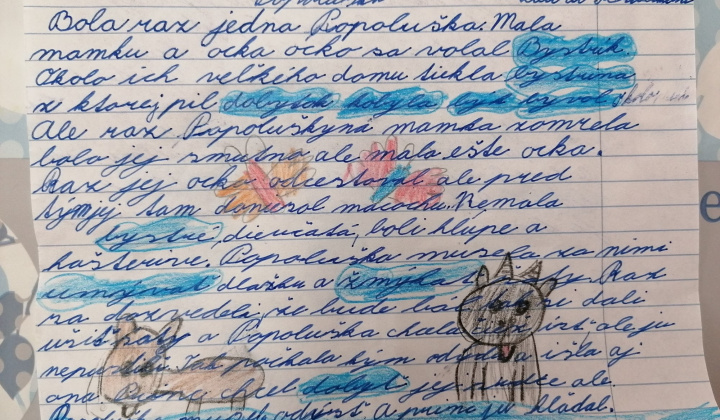 Bola raz jedna Popoluška. Mala
mamku a ocka ocko sa volal Bystrík.
Okolo ich veľkého domu tiekla bystrina
z ktorej pil dobytok kobyla býk byvol
Ale raz Popoluškyná mamka zomrela
bolo jej smutno ale mala ešte ocka.
Raz jej ocko odcestoval ale pred
týmjej tam doniesol macochu. Nemala
bystré dievčatá, boli hlúpe a
kašterine. Popoluška musela za nimi
umývať dlažbu a žmýkala šaty. Raz
sa dozvedeli, že bude bál tak si dali
ušiť šaty a Popoluška chcela tiež ísť ale ju
nepustili. Tak počkala kým odídu a išla aj
ona. Princ chcel dobyť jej srdce ale
odísť a princ ju hľadal.